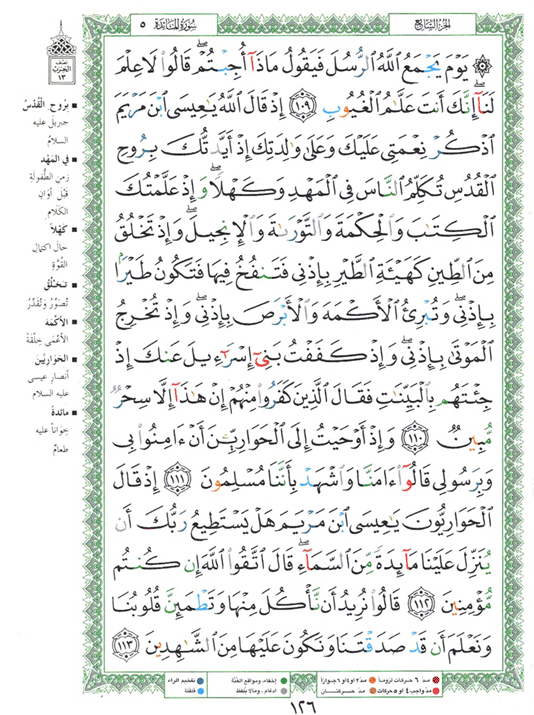 الجزء السابع
سورة المائدة ٥
۞ يَوْمَ يَجْمَعُ ٱللَّهُ ٱلرُّسُلَ فَيَقُولُ مَاذَآ أُجِبْتُمْ ۖ قَالُوا۟ لَا عِلْمَ
لَنَآ ۖ إِنَّكَ أَنتَ عَلَّٰمُ ٱلْغُيُوبِ ١٠٩ إِذْ قَالَ ٱللَّهُ يَٰعِيسَى ٱبْنَ مَرْيَمَ
ٱذْكُرْ نِعْمَتِى عَلَيْكَ وَعَلَىٰ وَٰلِدَتِكَ إِذْ أَيَّدتُّكَ بِرُوحِ
ٱلْقُدُسِ تُكَلِّمُ ٱلنَّاسَ فِى ٱلْمَهْدِ وَكَهْلًا ۖ وَإِذْ عَلَّمْتُكَ
ٱلْكِتَٰبَ وَٱلْحِكْمَةَ وَٱلتَّوْرَىٰةَ وَٱلْإِنجِيلَ ۖ وَإِذْ تَخْلُقُ
مِنَ ٱلطِّينِ كَهَيْـَٔةِ ٱلطَّيْرِ بِإِذْنِى فَتَنفُخُ فِيهَا فَتَكُونُ طَيْرًۢا
بِإِذْنِى ۖ وَتُبْرِئُ ٱلْأَكْمَهَ وَٱلْأَبْرَصَ بِإِذْنِى ۖ وَإِذْ تُخْرِجُ
ٱلْمَوْتَىٰ بِإِذْنِى ۖ وَإِذْ كَفَفْتُ بَنِىٓ إِسْرَٰٓءِيلَ عَنكَ إِذْ
جِئْتَهُم بِٱلْبَيِّنَٰتِ فَقَالَ ٱلَّذِينَ كَفَرُوا۟ مِنْهُمْ إِنْ هَٰذَآ إِلَّا سِحْرٌ
مُّبِينٌ ١١٠ وَإِذْ أَوْحَيْتُ إِلَى ٱلْحَوَارِيِّـۧنَ أَنْ ءَامِنُوا۟ بِى
وَبِرَسُولِى قَالُوٓا۟ ءَامَنَّا وَٱشْهَدْ بِأَنَّنَا مُسْلِمُونَ ١١١ إِذْ قَالَ
ٱلْحَوَارِيُّونَ يَٰعِيسَى ٱبْنَ مَرْيَمَ هَلْ يَسْتَطِيعُ رَبُّكَ أَن
يُنَزِّلَ عَلَيْنَا مَآئِدَةً مِّنَ ٱلسَّمَآءِ ۖ قَالَ ٱتَّقُوا۟ ٱللَّهَ إِن كُنتُم
مُّؤْمِنِينَ ١١٢ قَالُوا۟ نُرِيدُ أَن نَّأْكُلَ مِنْهَا وَتَطْمَئِنَّ قُلُوبُنَا
وَنَعْلَمَ أَن قَدْ صَدَقْتَنَا وَنَكُونَ عَلَيْهَا مِنَ ٱلشَّٰهِدِينَ ١١٣
نصف
الحزب
١٣
بروح القُدُس
جبريل عليه
السلام
في المهد
زمن الطفولة
قبل أوان
الكلام
كهلاً
حال اكتمال
القوة
تخلق
تصور وتقدر
الأكمه
الأعمى خلقة
الحواريين
أنصار عيسى
عليه السلام
مائدة
خواناً عليه
طعام
مد ٦ حركات لزوماً
مد ٢ أو ٤ أو ٦ جوازاً
إخفاء، ومواقع الغنة
تفخيم الراء
مد واجب ٤ أو ٥ حركات
مد حركتان
إدغام، وما لا يلفظ
قلقلة
١٢٦